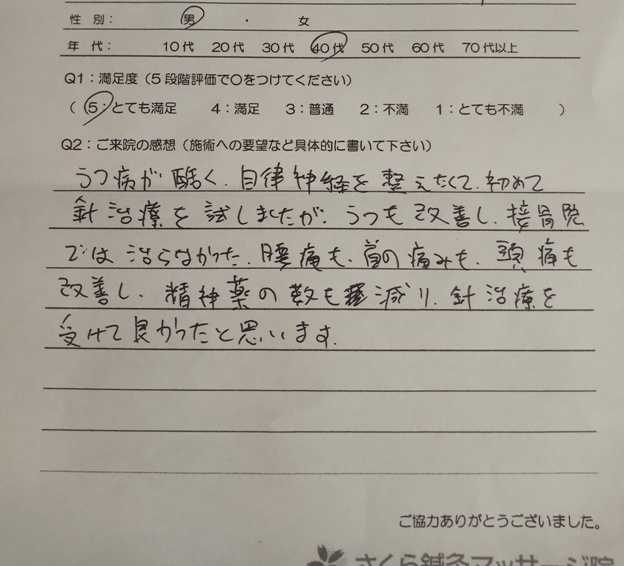 性 別： 男 ・ 女
年 代： 10代 20代 30代 40代 50代 60代 70代以上
Q1：満足度（5段階評価で〇をつけてください）
（ 5：とても満足 4：満足 3：普通 2：不満 1：とても不満 ）
Q2：ご来院の感想（施術への要望など具体的に書いて下さい）
うつ病が酷く、自律神経を整えたくて、初めて
針治療を試しましたが、うつも改善し、接骨院
では治らなかった、腰痛も、首の痛みも、頭痛も
改善し、精神薬の数も減り、針治療を
受けて良かったと思います。
ご協力ありがとうございました。
さくら鍼灸マッサージ院